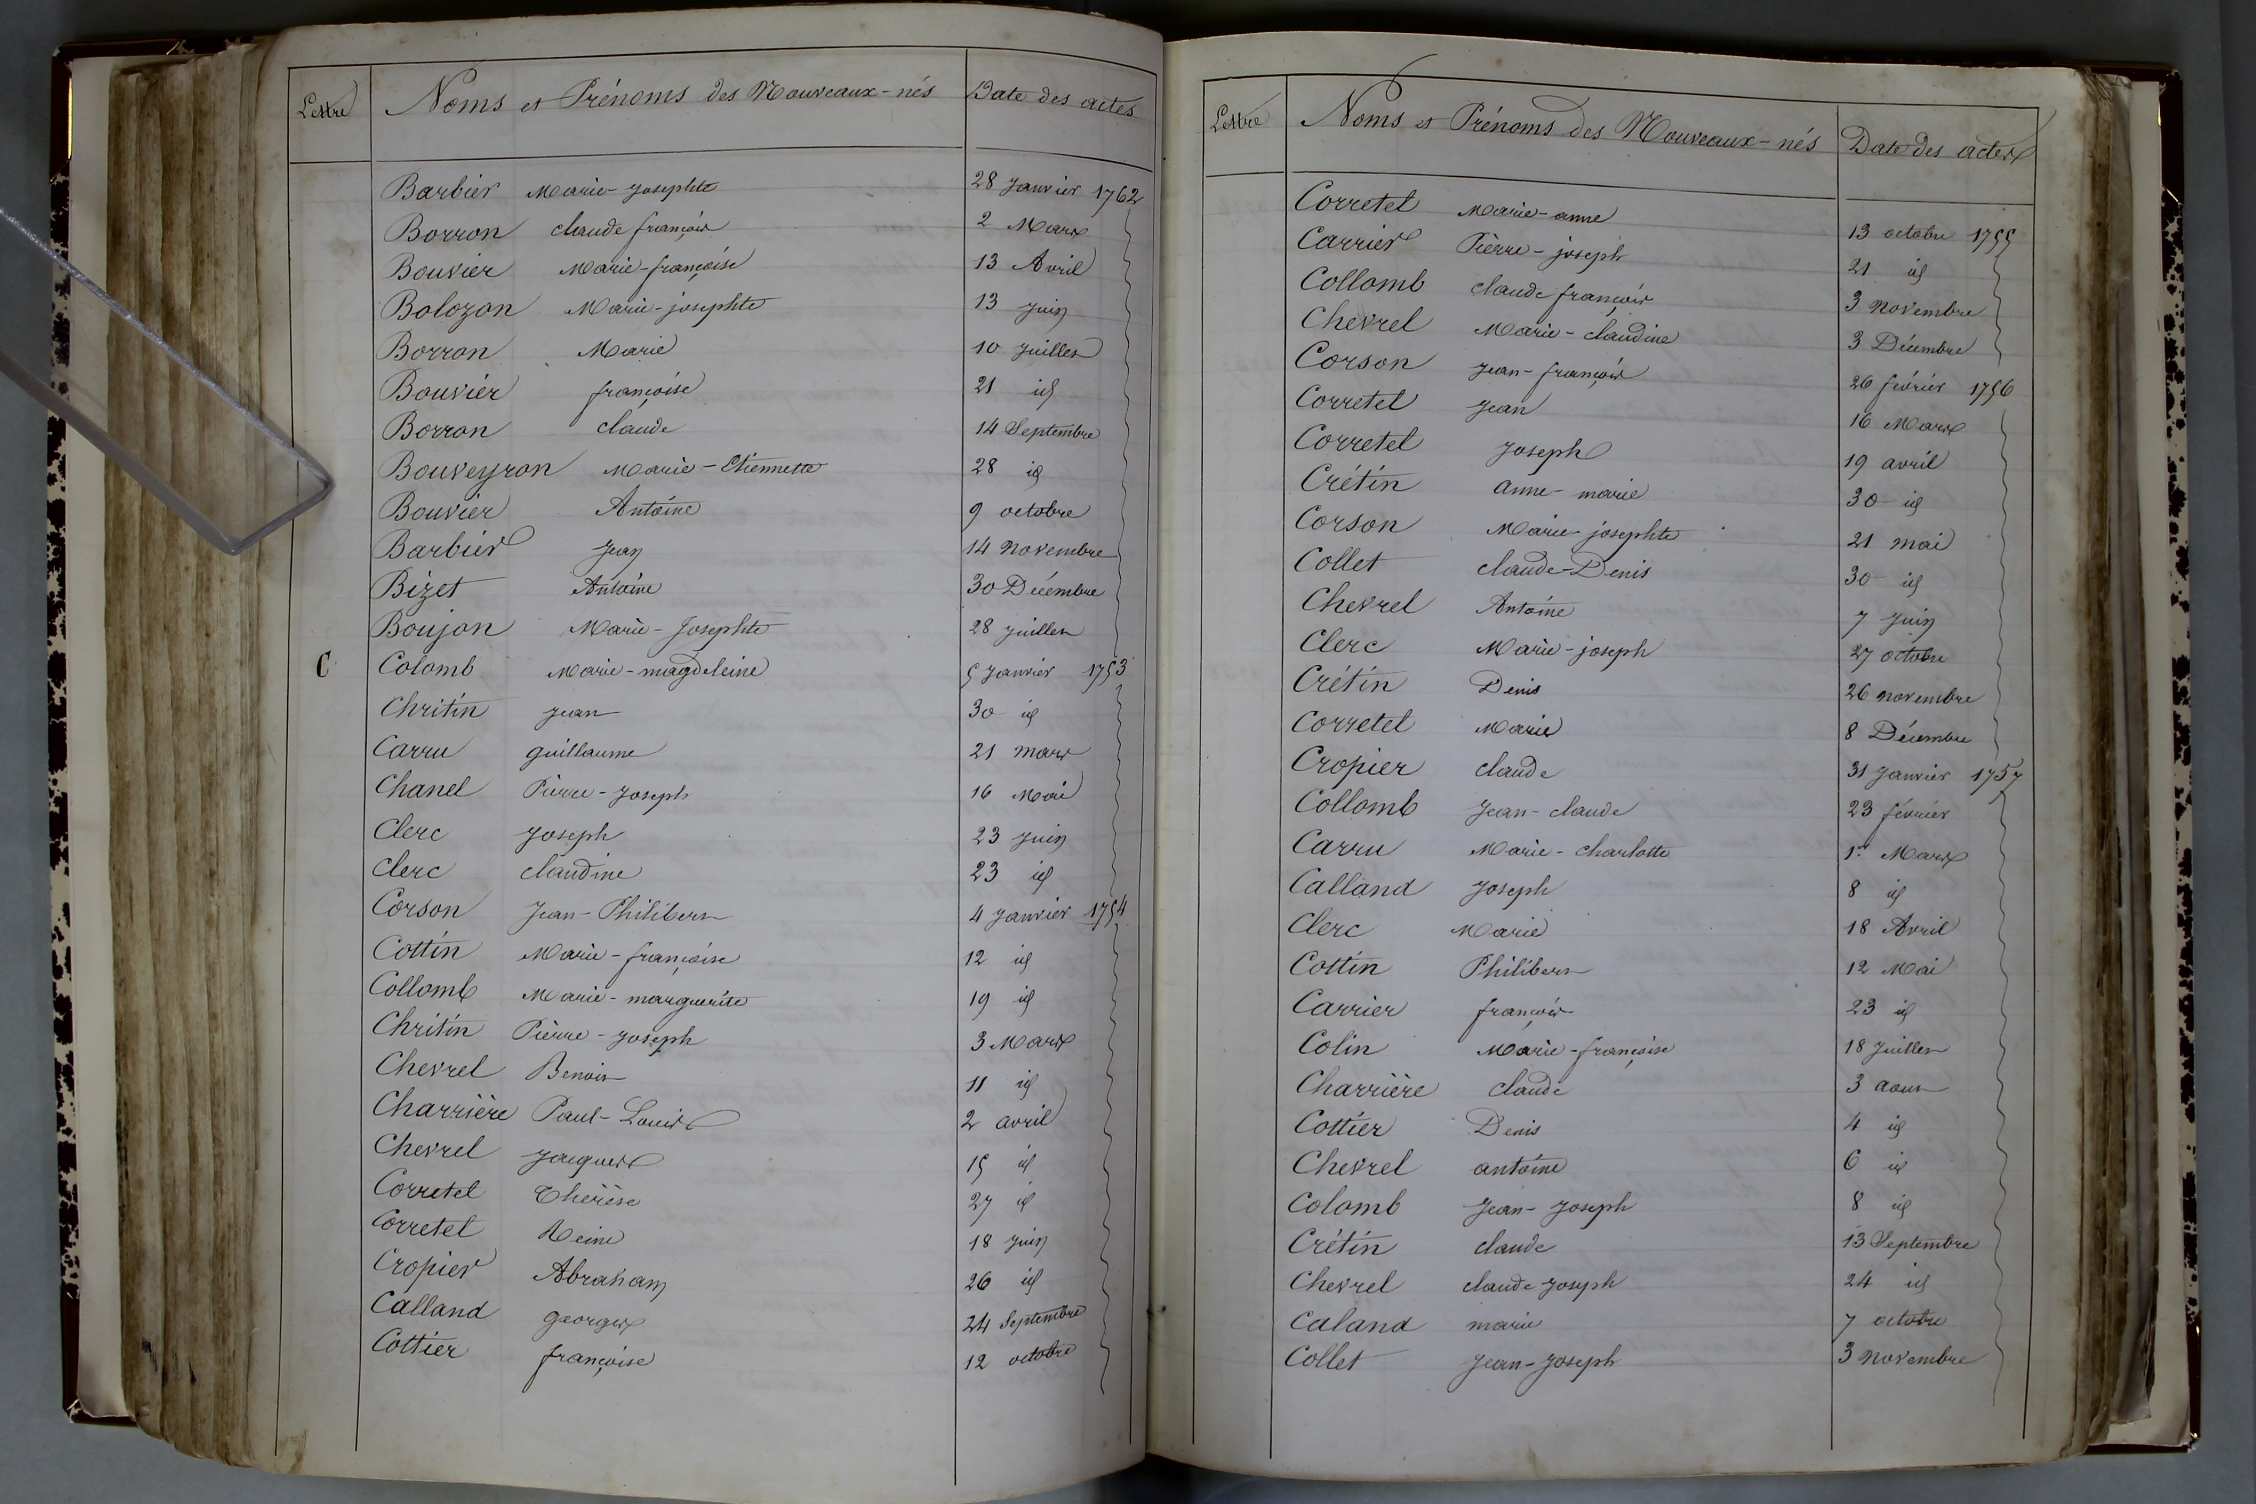 Lettre Noms et Prénoms des Nouveaux-nés Date des actes
Barbier Marie-Josephte 28 Janvier 1762
Borron claude françois 2 Mars
Bouvier Marie-françoise 13 Avril
Bolozon Marie-josephte 13 Juin
Borron Marie 10 Juillet
Bouvier françoise 21 id
Borron claude 14 Septembre
Bouveyron Marie-Etiennette 28 id
Bouvier Antoine 9 octobre
Barbier Jean 14 Novembre
Bizet Antoine 30 Décembre
Boujon Marie-Josephte 28 Juillet
C Colomb Marie-magdeleine 5 Janvier 1753
Chritin Jean 30 id
Carru guillaume 21 mars
Chanel Pierre-Joseph 16 Mai
Clerc Joseph 23 Juin
Clerc claudine 23 id
Corson Jean-Philibert 4 Janvier 1754
Cottin Marie-françoise 12 id
Collomb Marie-marguerite 19 id
Chritin Pierre-Joseph 3 Mars
Chevrel Benoit 11 id
Charrière Paul-Louis 2 avril
Chevrel Jacques 15 id
Corretel Thérèse 27 id
Corretel Reine 18 Juin
Cropier Abraham 26 id
Calland georges 24 Septembre
Cottier françoise 12 octobre
Lettre Noms et Prénoms des Nouveaux-nés Date des actes
Corretel Marie-anne 13 octobre 1755
Carrier Pierre-joseph 21 id
Collomb claude françois 3 Novembre
Chevrel Marie-claudine 3 Décembre
Corson Jean-françois 26 février 1756
Corretel Jean 16 Mars
Corretel Joseph 19 avril
Crétin anne-marie 30 id
Corson Marie-josephte 21 mai
Collet claude-Denis 30 id
Chevrel Antoine 7 Juin
Clerc Marie-joseph 27 octobre
Crétin Denis 26 novembre
Corretel Marie 8 Décembre
Cropier claude 31 Janvier 1757
Collomb Jean-claude 23 février
Carru Marie-charlotte 1er Mars
Calland Joseph 8 id
Clerc Marie 18 Avril
Cottin Philibert 12 Mai
Carrier françois 23 id
Colin Marie-françoise 18 Juillet
Charrière claude 3 aout
Cottier Denis 4 id
Chevrel antoine 6 id
Colomb Jean-Joseph 8 id
Crétin claude 13 Septembre
Chevrel claude Joseph 24 id
Caland marie 7 octobre
Collet Jean-Joseph 3 novembre